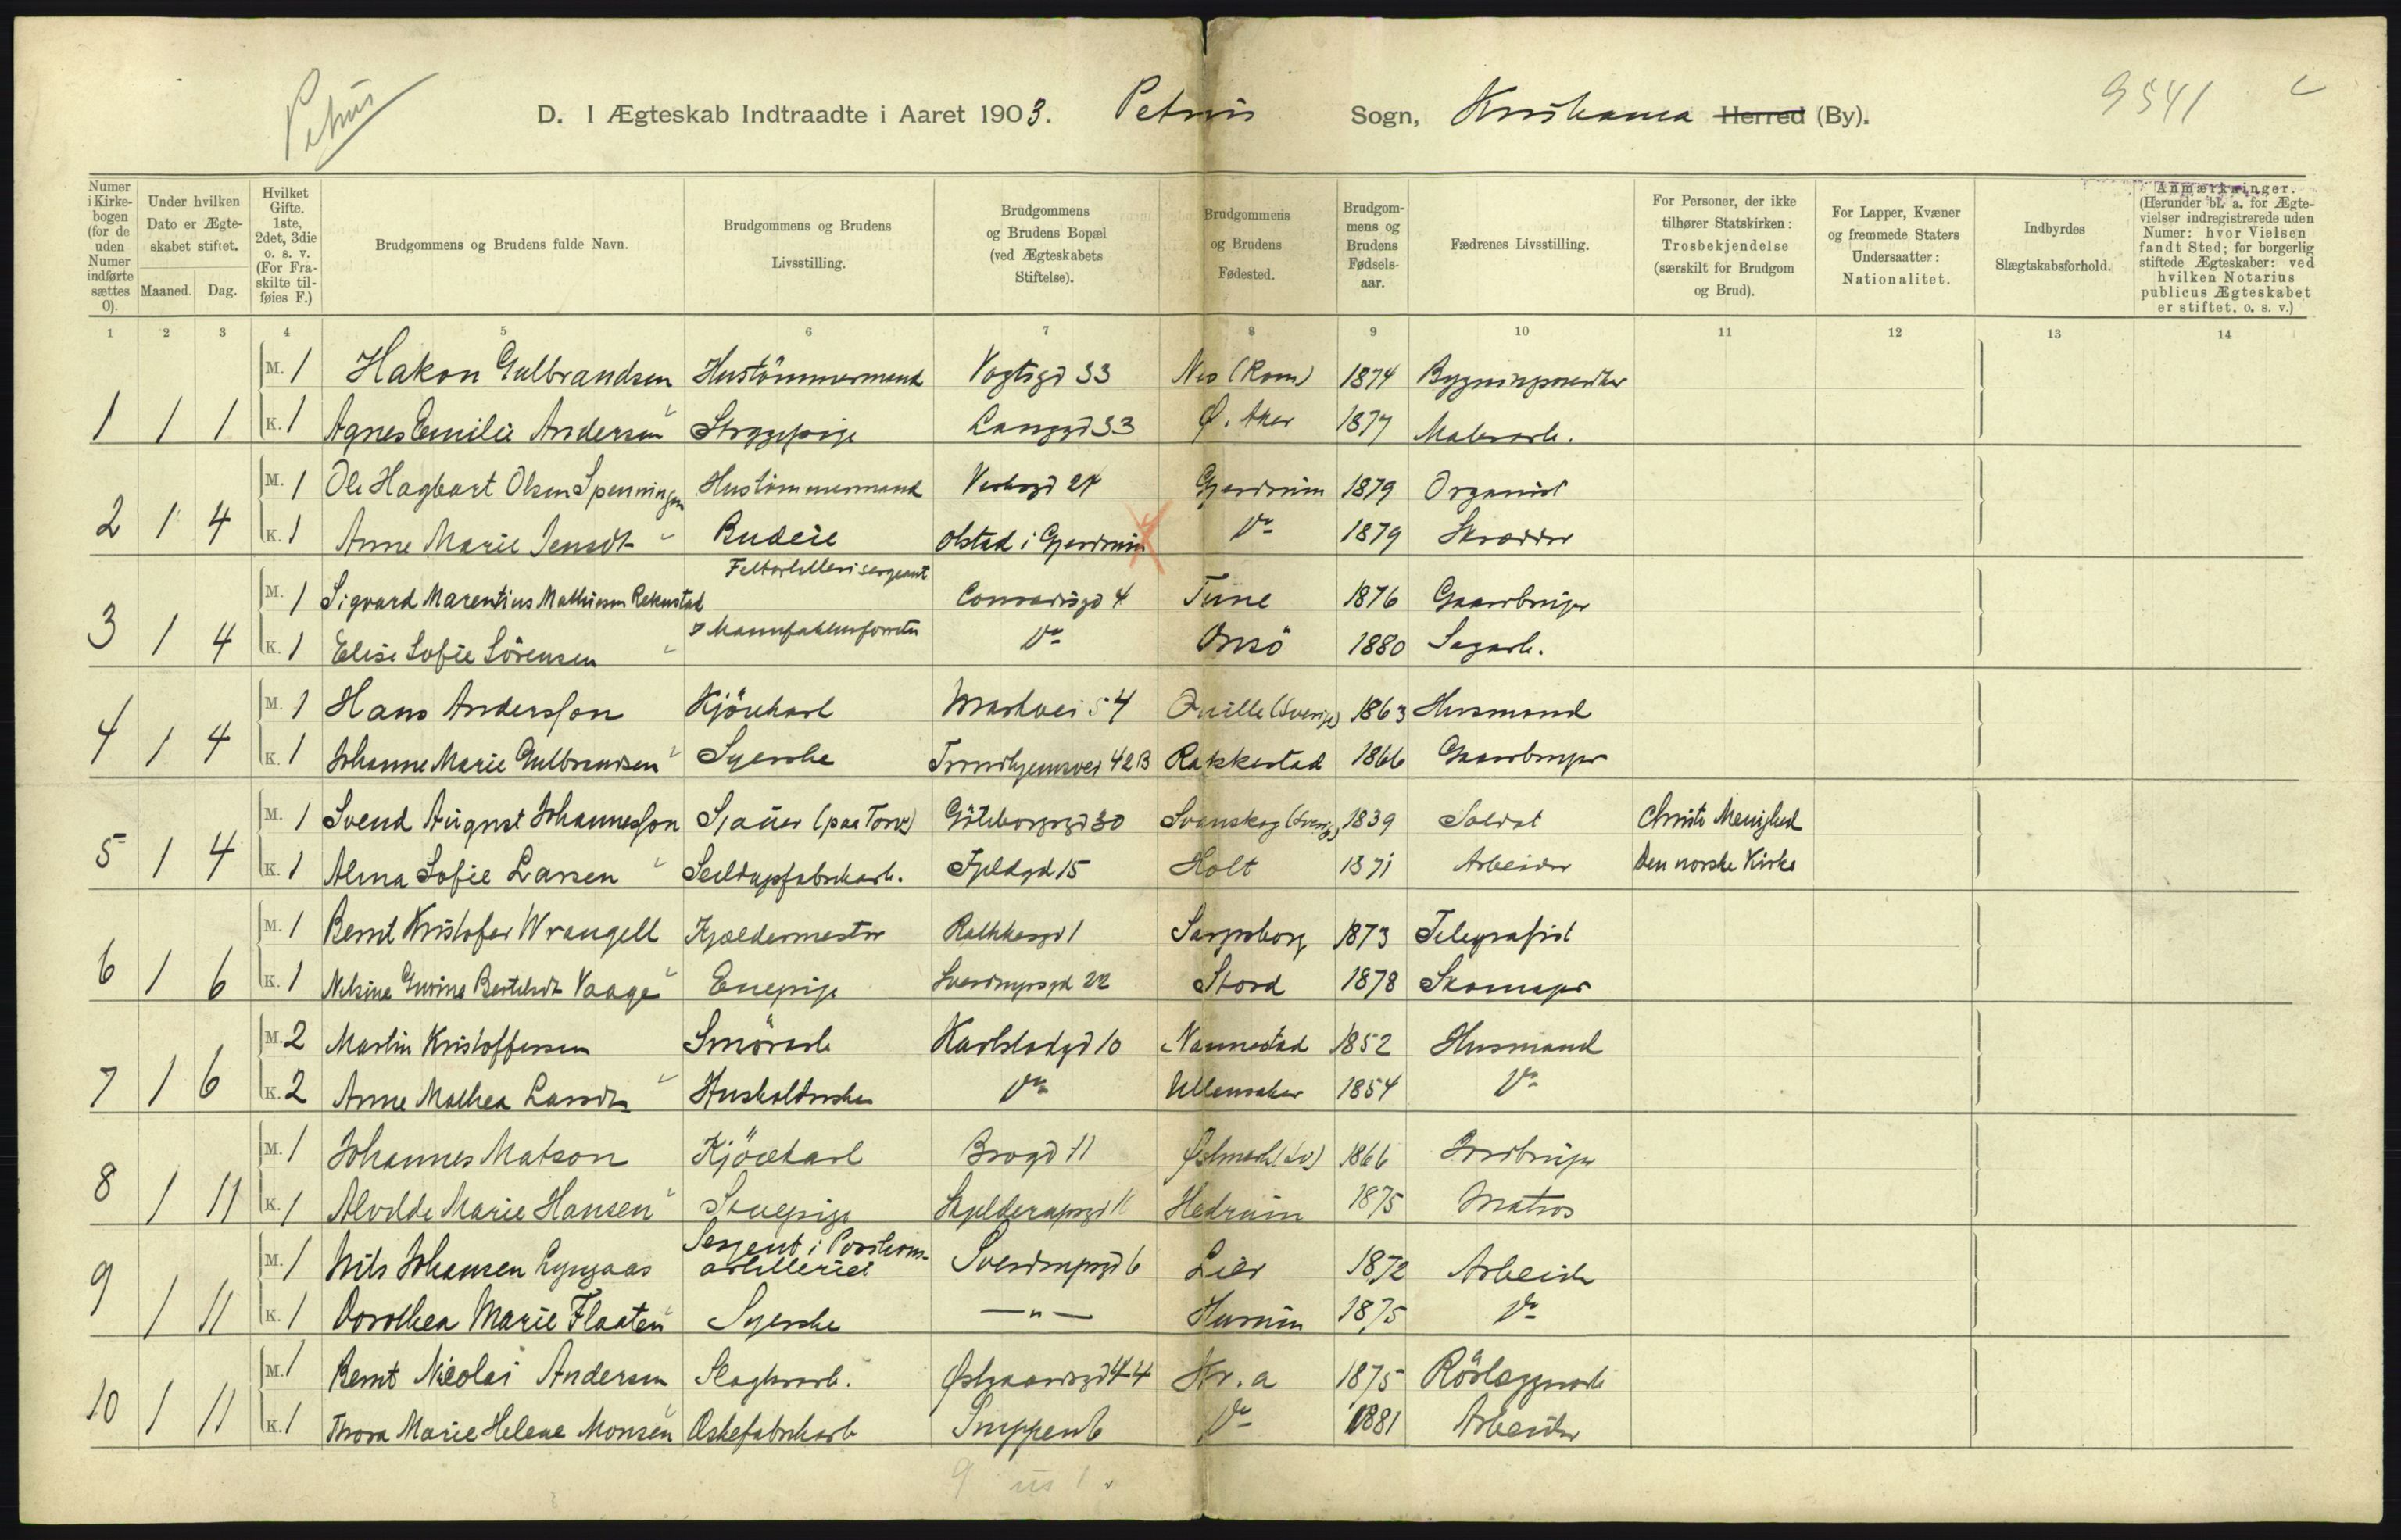 Petrus
D. I Ægteskab Indtraadte i Aaret 1903. Petrus Sogn, Kristiania Herred (By). 9541
Numer i Kirkebogen (for de uden Numer indførte sættes 0).
Under hvilken Dato er Ægteskabet stiftet.
Maaned. Dag.
Hvilket Gifte. 1ste, 2det, 3die o. s. v. (For Fraskilte tilføies F.)
Brudgommens og Brudens fulde Navn.
Brudgommens og Brudens Livsstilling.
Brudgommens og Brudens Bopæl (ved Ægteskabets Stiftelse).
Brudgommens og Brudens Fødested.
Brudgommens og Brudens Fødselsaar.
Fædrenes Livsstilling.
For Personer, der ikke tilhører Statskirken: Trosbekjendelse (særskilt for Brudgom og Brud).
For Lapper, Kvæner og fremmede Staters Undersaatter: Nationalitet.
Indbyrdes Slægtskabsforhold.
Anmærkninger. (Herunder bl. a. for Ægtevielser indregistrerede uden Numer: hvor Vielsen fandt Sted; for borgerlig stiftede Ægteskaber: ved hvilken Notarius publicus Ægteskabet er stiftet, o. s. v.)
1 2 3 4 5 6 7 8 9 10 11 12 13 14
M. 1 Hakon Gulbrandsen Hustömmermand Vogtsgd 33 Nes (Rom) 1874
1 1 1 K. 1 Agnes Emilie Andersen Strygepige Langgd 33 Ø. Aker 1877 Malerarb.
M. 1 Ole Hagbart Olsen Spenningen Hustömmermand Verksgd 24 Gjerdrum 1879 Organist
2 1 4 K. 1 Anne Marie Jensdt Budeie Olstad i Gjerdrum Do 1879 Skrædder
M. 1 Sigvard Marentius Mathisen Rekustad Feltartillerisergeant Conradisgd 4 Tune 1876 Gaardbruger
3 1 4 K. 1 Elise Sofie Sörensen Do Onsö 1880 Sagarb.
M. 1 Hans Andersson Kjörekarl Markvei 54 Qville (Sverige) 1863 Husmand
4 1 4 K. 1 Johanne Marie Gulbrandsen Syerske Trondhjemsvei 42B Rakkestad 1866 Gaardbruger
M. 1 Svend August Johannesson Sjauer (paa Torv) Göteborgsgd 30 Svanskog (Sverige) 1839 Soldat Christi Menighed
5 1 4 K. 1 Alma Sofie Larsen Seildugsfabrikarb. Fjeldgd 15 Holt 1871 Arbeider Den norske Kirke
M. 1 Bernt Kristofer Wrangell Kjældermester Rathkesgd 1 Sarpsborg 1873 Telegrafist
6 1 6 K. 1 Nelsine Gurine Bertelsdt Vaage Enepige Sverdrupsgd 22 Stord 1878 Skomager
M. 2 Martin Kristoffersen Smörarb Karlstadgd 10 Nannestad 1852 Husmand
7 1 6 K. 2 Anne Mathea Larsdt Husholderske Do Ullensaker 1854 Do
M. 1 Johannes Matson Kjörekarl Brogd 11 Östmark (Sv) 1866 Jordbruger
8 1 11 K. 1 Alvilde Marie Hansen Stuepige Skjelderupsgd 11 Hedrum 1875 Matros
M. 1 Nils Johansen Lyngaas Sergent i Positionsartilleriet Sverdrupsgd 6 Lier 1872 Arbeider
9 1 11 K. 1 Dorothea Marie Flaaten Syerske — " — Hurum 1875 Do
M. 1 Bernt Nicolai Andersen Slagterarb. Østgaardsgd 44 Kr.a 1875 Rörlæggerarb
10 1 11 K. 1 Thora Marie Helene Monsen Æskefabrikarb Snippen 6 Do 1881 Arbeider